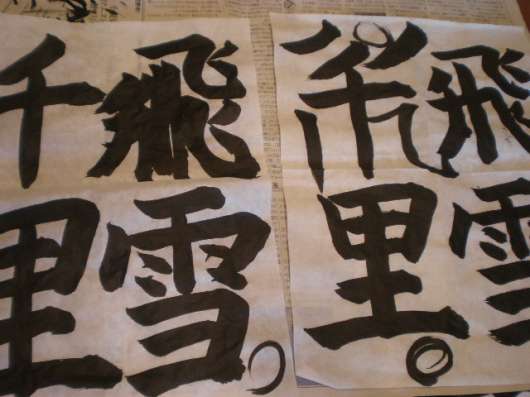 飛雪
千里
飛雪
千里